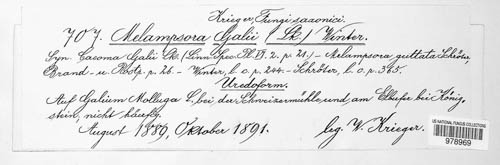 Krieger, Fungi saxonici.
707. Melampsora Galii (Lk.) Winter.
Syn. Caeoma Galii Lk. (Linn. Spec. Pl. VI. 2. p. 21.) - Melampsora guttata Schröter
Brand- u. Rostp. p. 26. - Winter, l. c. p. 244. - Schröter, l. c. p. 365.
Uredoform.
Auf Galium Mollugo L. bei der Schweizermühle und am Elbufer bei König-
stein, nicht häufig.
August 1889, Oktober 1891. leg. W. Krieger.
US NATIONAL FUNGUS COLLECTIONS
978969